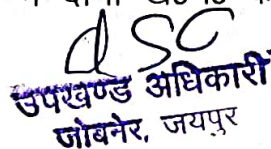 dsc
उपखण्ड अधिकारी
जोबनेर, जयपुर